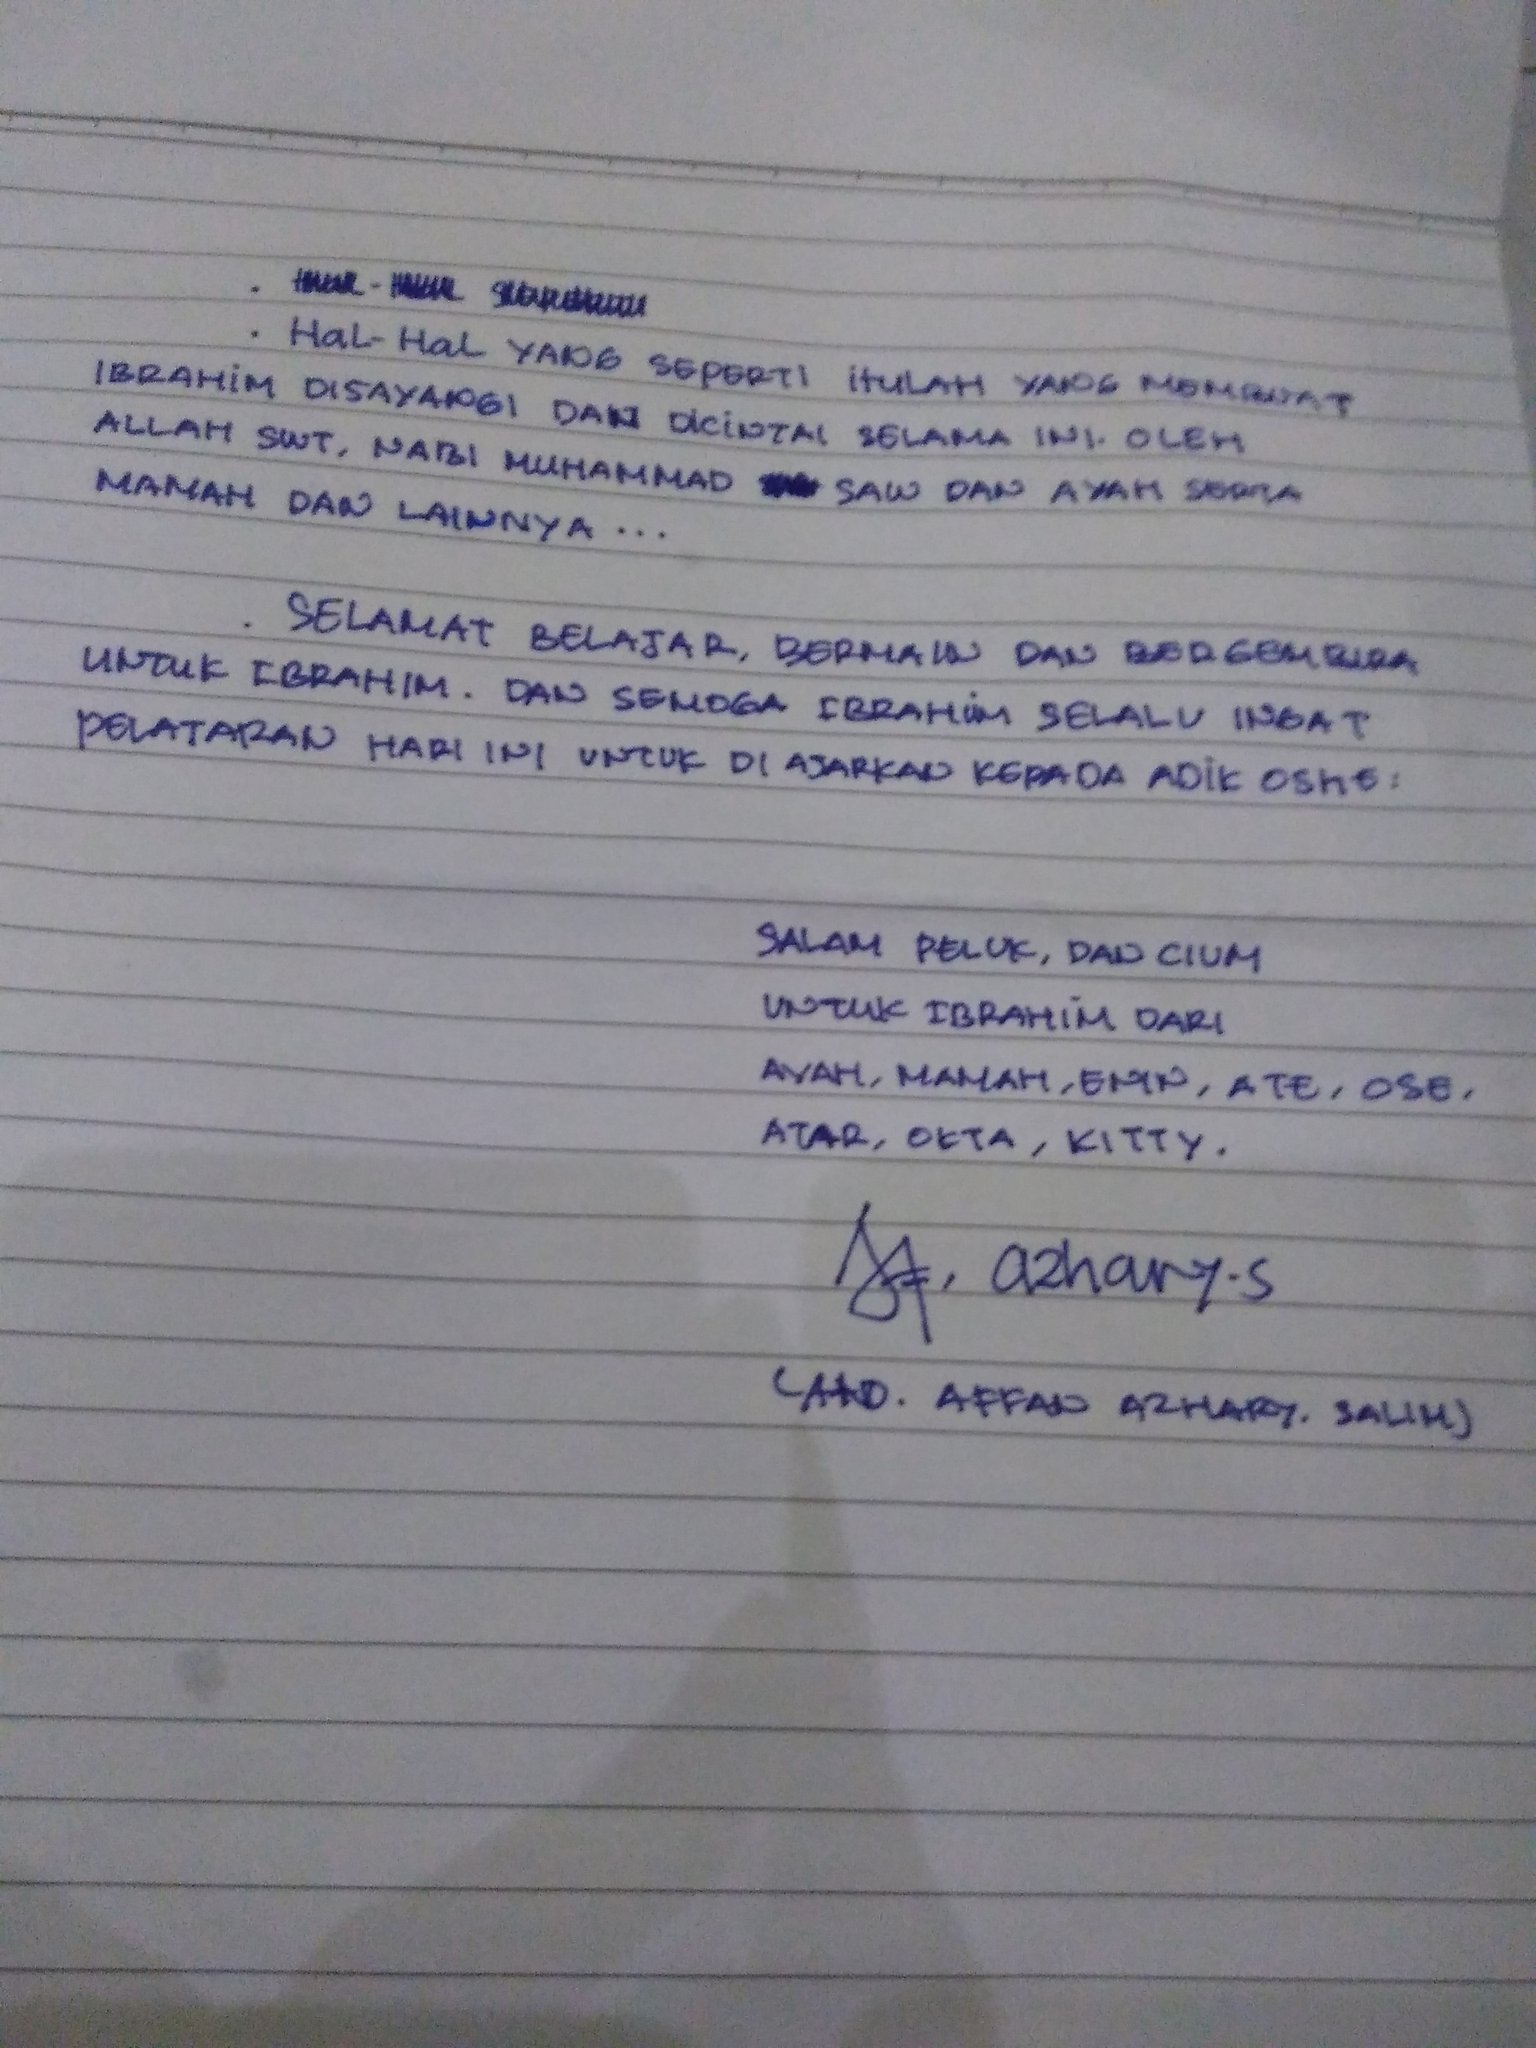 . HAL-HAL YANG SEPERTI ITULAH YANG MEMBUAT
IBRAHIM DISAYANGI DAN DICINTAI SELAMA INI. OLEH
ALLAH SWT, NABI MUHAMMAD SAW DAN AYAH SERTA
MAMAH DAN LAINNYA ...
. SELAMAT BELAJAR, BERMAIN DAN BERGEMBIRA
UNTUK IBRAHIM. DAN SEMOGA IBRAHIM SELALU INGAT
PELATARAN HARI INI UNTUK DI AJARKAN KEPADA ADIK OSHE:
SALAM PELUK, DAN CIUM
UNTUK IBRAHIM DARI
AYAH, MAMAH, ENIN, ATE, OSE,
ATAR, OKTA, KITTY.
azhary.s
AFFAN AZHARY. SALIH)